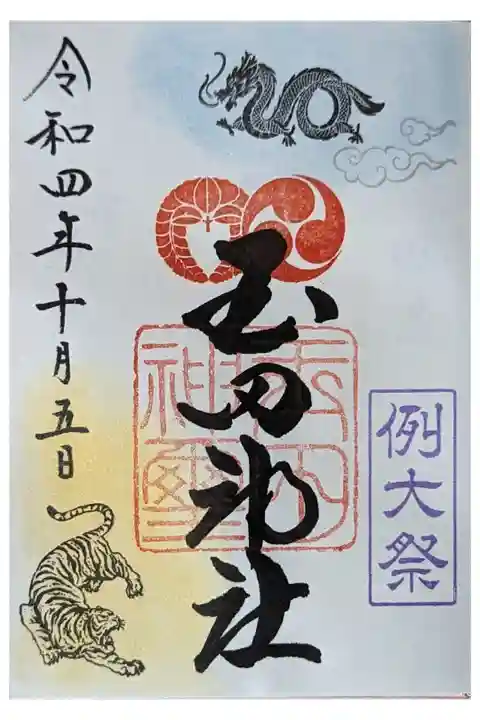 例大祭
玉田神社
令和四年十月五日